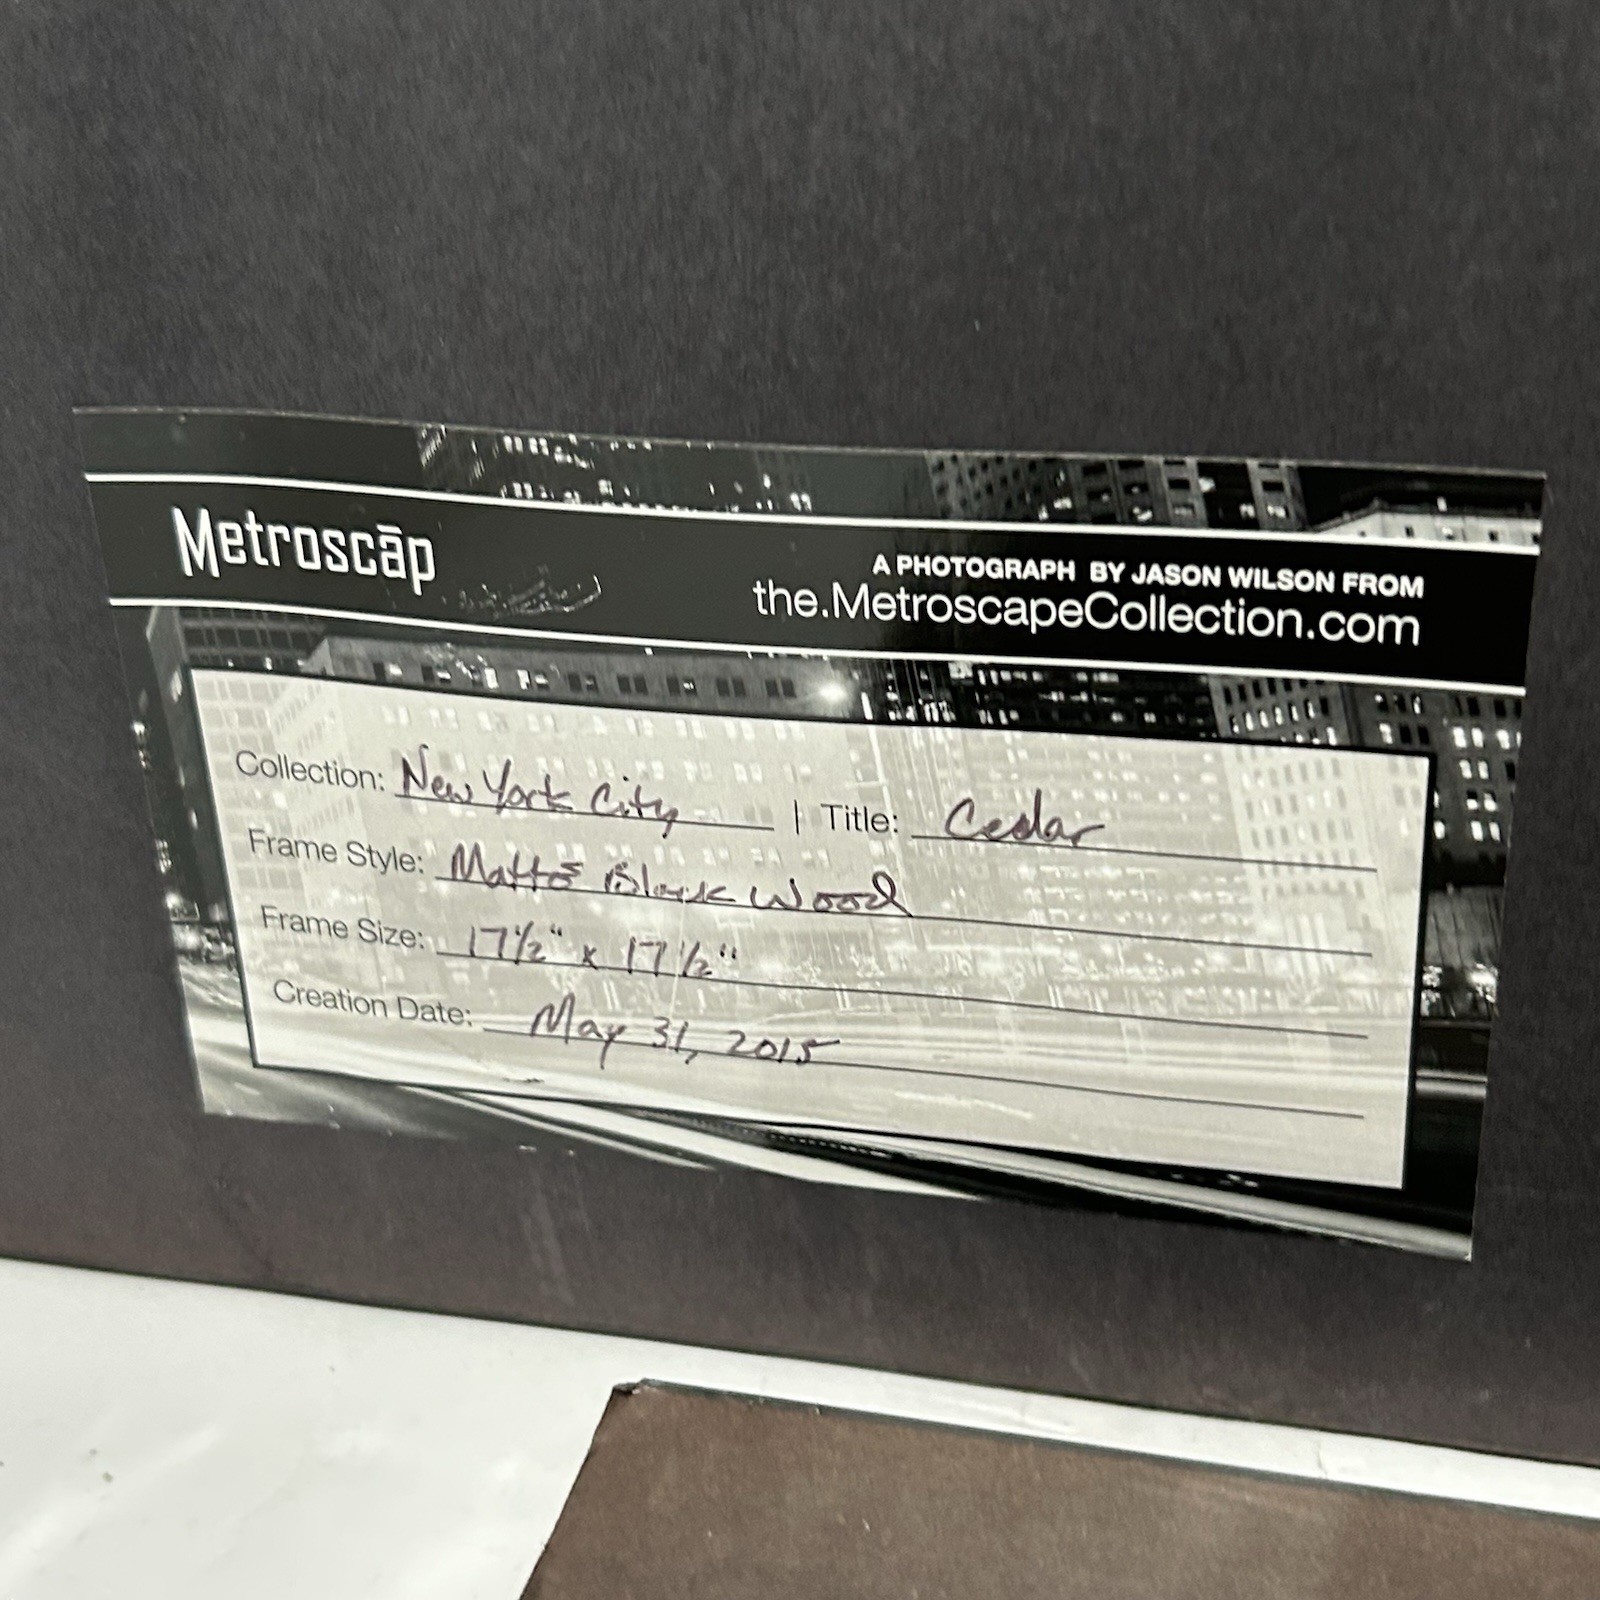 Metroscāp
A PHOTOGRAPH BY JASON WILSON FROM
the.MetroscapeCollection.com
Collection: New York City | Title: Cedar
Frame Style: Matte Black Wood
Frame Size: 17 1/2" x 17 1/2"
Creation Date: May 31, 2015